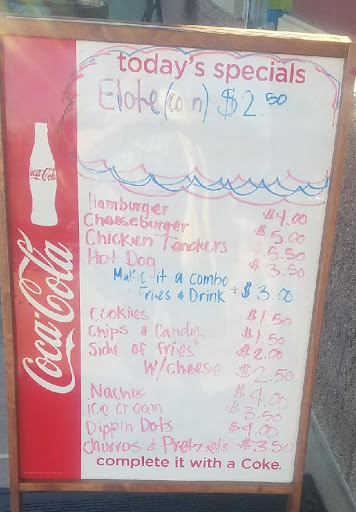 today's specials
Elote (corn) $2.50
Coca-Cola
Coca-Cola
Hamburger $4.00
Cheeseburger $5.00
Chicken Tenders $5.50
Hot Dog $3.50
Make it a combo
Fries & Drink + $3.00
Cookies $1.50
Chips & Candy $1.50
Side of fries $2.00
W/cheese $2.50
Nachos $4.00
Ice Cream $3.50
Dippin Dots $4.00
Churros & Pretzels $3.50
complete it with a Coke.